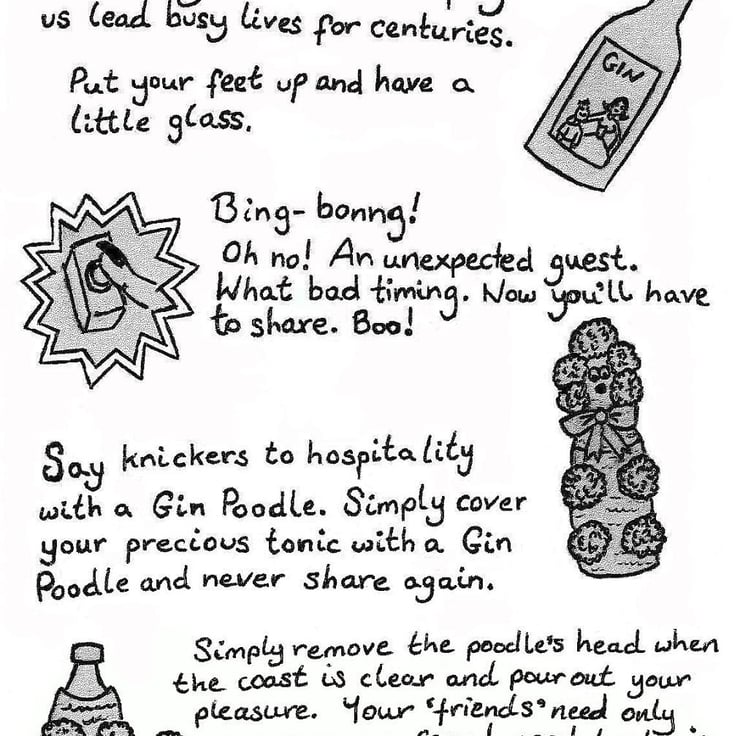 us lead busy lives for centuries.
Put your feet up and have a
little glass.
GIN
Bing-bonng!
Oh no! An unexpected guest.
What bad timing. Now you'll have
to share. Boo!
Say knickers to hospitality
with a Gin Poodle. Simply cover
your precious tonic with a Gin
Poodle and never share again.
Simply remove the poodle's head when
the coast is clear and pour out your
pleasure. Your 'friends' need only